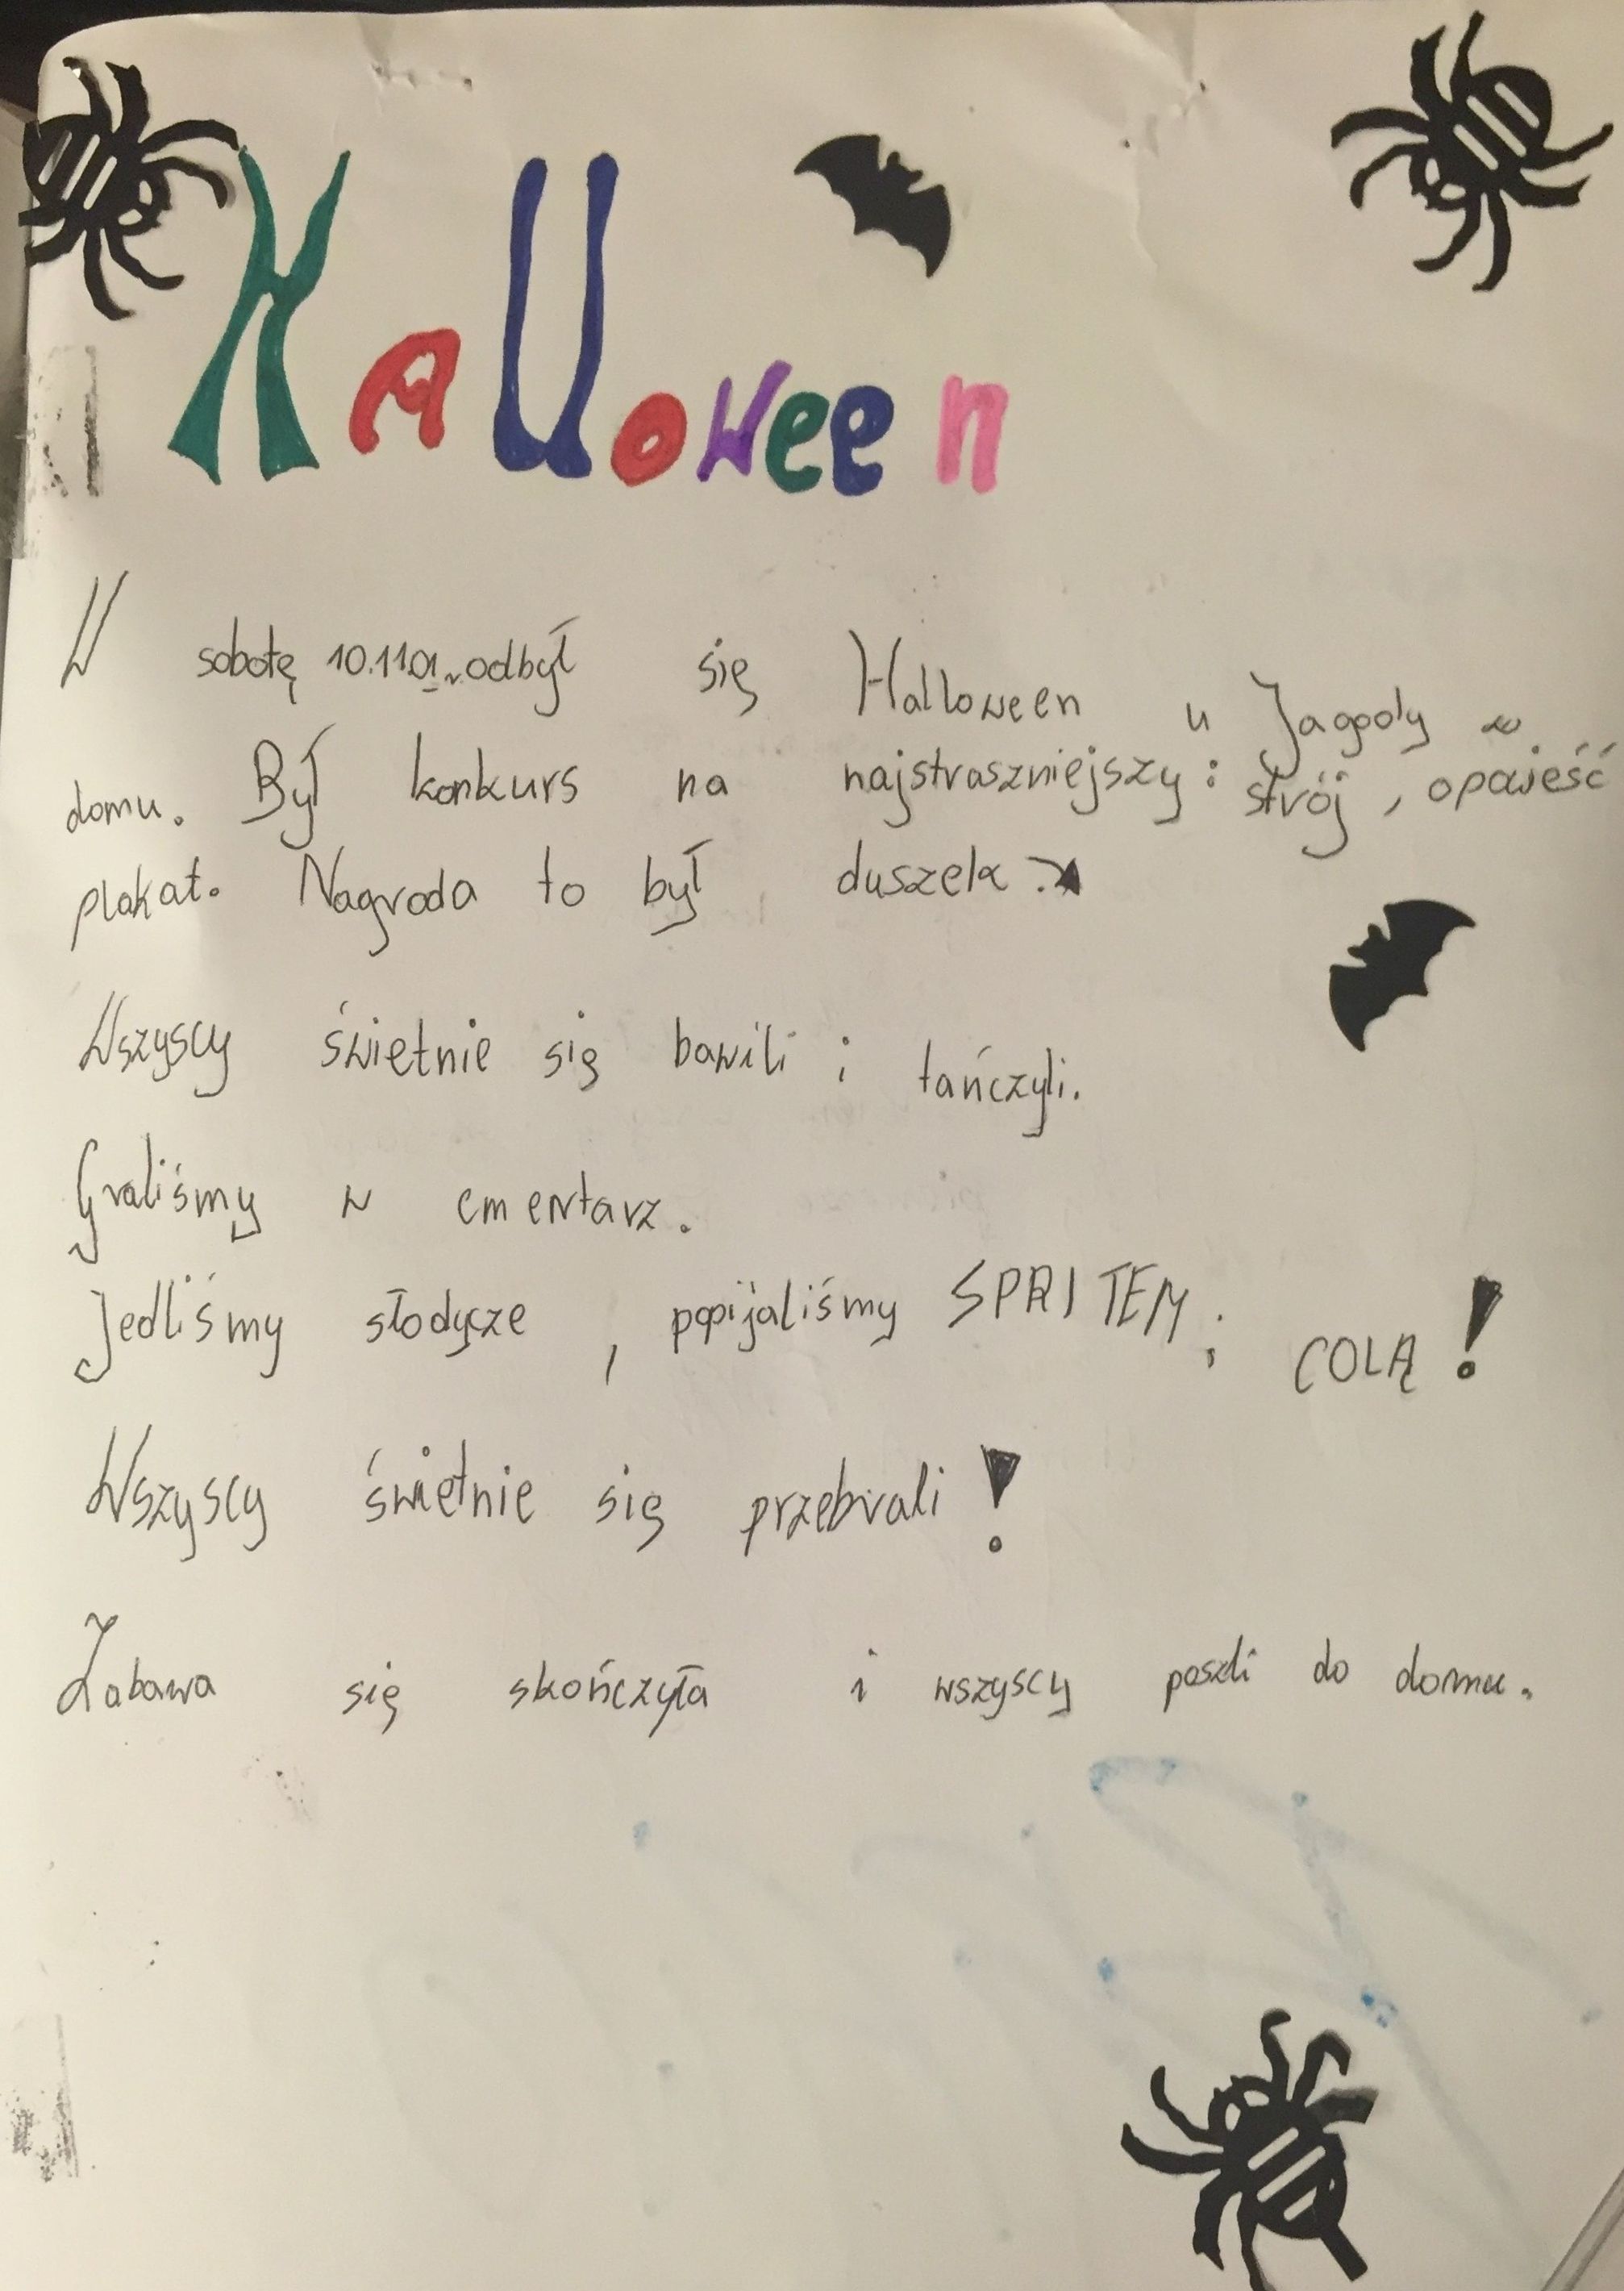 Halloween
W sobotę 10.11.01r. odbył się Halloween u Jagody w
domu. Był konkurs na najstraszniejszy: strój, opowieść
plakat. Nagroda to był duszek
Wszyscy świetnie się bawili i tańczyli.
Graliśmy w cmentarz.
Jedliśmy słodycze, popijaliśmy SPRITEM; COLĄ!
Wszyscy świetnie się przebrali!
Zabawa się skończyła i wszyscy poszli do domu.